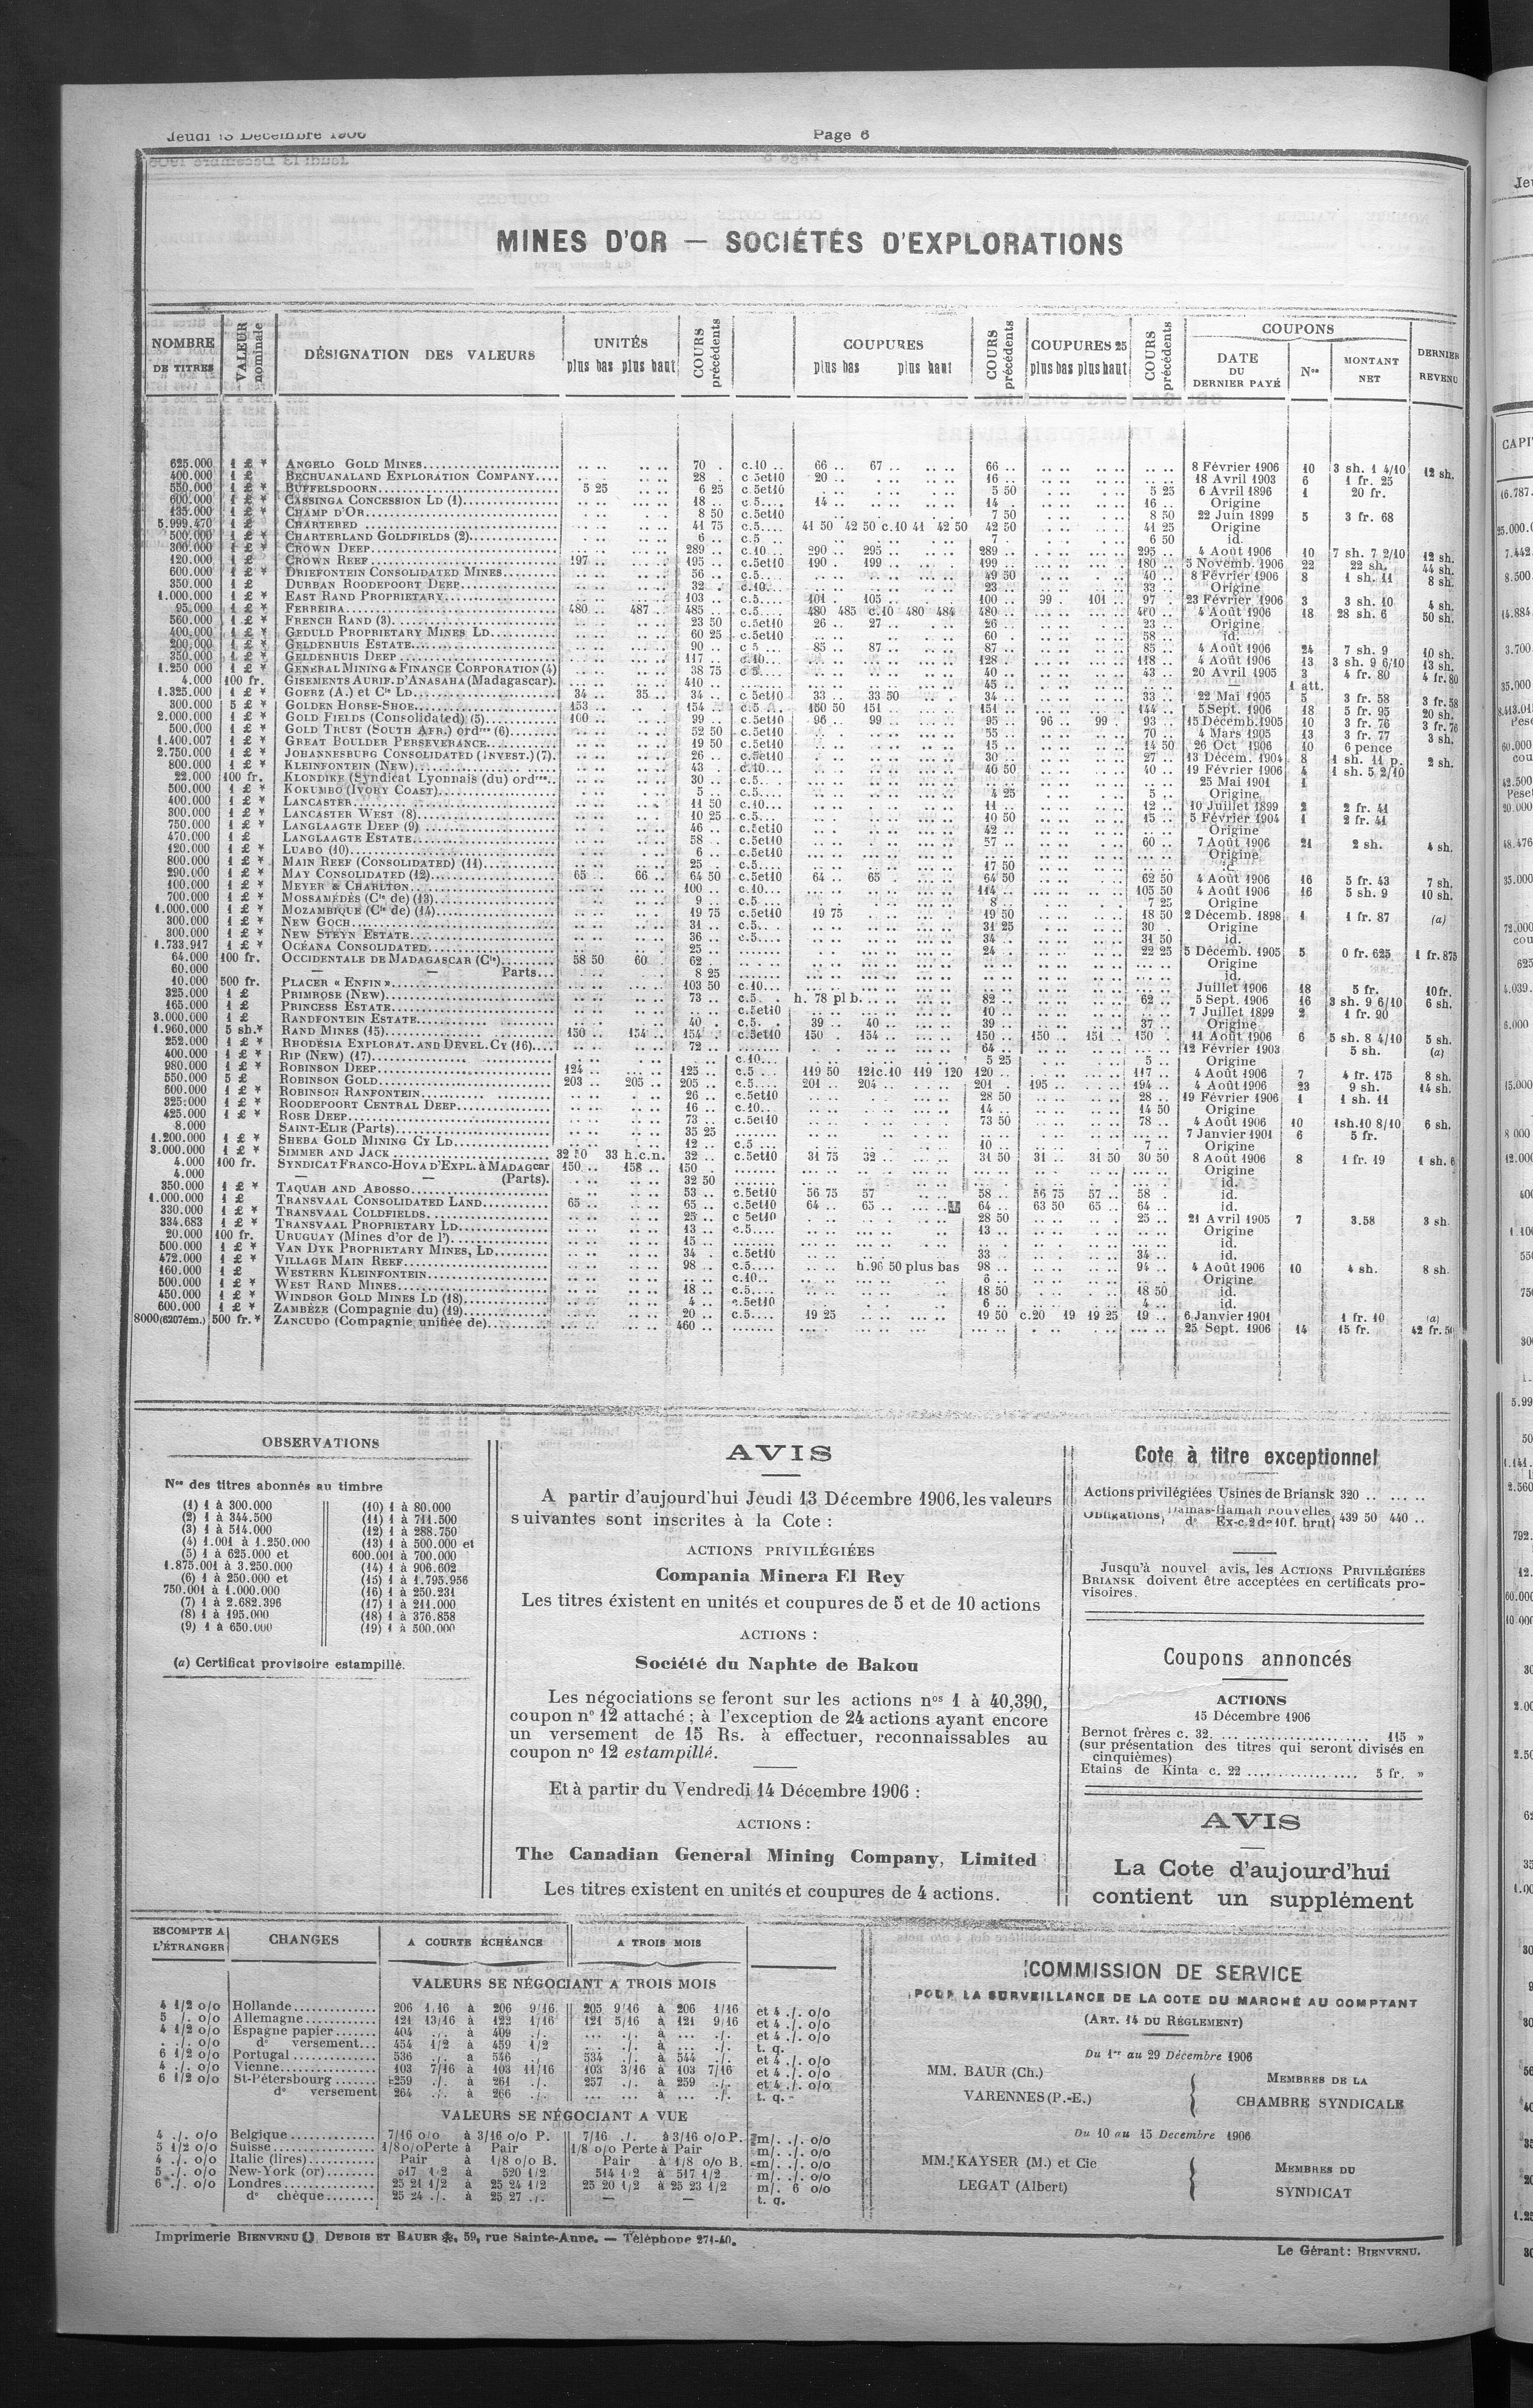 Jeudi 13 Décembre 1906
Page 6
MINES D'OR — SOCIÉTÉS D'EXPLORATIONS
NOMBRE DE TITRES
VALEUR nominale
DÉSIGNATION DES VALEURS
UNITÉS plus bas plus haut
COURS précédents
COUPURES plus bas plus haut
COURS précédents
COUPURES 25 plus bas plus haut
COURS précédents
COUPONS
DATE DU DERNIER PAYÉ
Nos
MONTANT NET
DERNIER REVENU
625.000 1 £ * ANGELO GOLD MINES 70 . c.10 .. 66 .. 67 .. 66 .. 8 Février 1906 10 3 sh. 1 4/10 12 sh.
400.000 1 £ BECHUANALAND EXPLORATION COMPANY 28 . c.5et10 20 .. 16 .. 18 Avril 1903 6 1 fr. 25
550.000 1 £ * BUFFELSDOORN 5 25 6 25 c.5et10 5 50 5 25 6 Avril 1896 1 20 fr.
600.000 1 £ * CASSINGA CONCESSION LD (1) 18 .. c.5.... 14 .. 14 .. 16 .. Origine
135.000 1 £ * CHAMP D'OR 8 50 c.5et10 7 50 8 50 22 Juin 1899 5 3 fr. 68
5.999.470 1 £ CHARTERED 41 75 c.5.... 41 50 42 50 c.10 41 42 50 42 50 41 25 Origine
500.000 1 £ * CHARTERLAND GOLDFIELDS (2) 6 .. c.5 ... 7 .. 6 50 id.
300.000 1 £ * CROWN DEEP 289 .. c.10... 290 .. 295 .. 289 .. 295 .. 4 Août 1906 10 7 sh. 7 2/10 12 sh.
120.000 1 £ CROWN REEF 197 .. 195 .. c.5et10 190 199 .. 199 .. 180 5 Novemb. 1906 22 22 sh. 44 sh.
600.000 1 £ * DRIEFONTEIN CONSOLIDATED MINES 56 .. c.5... 49 50 40 .. 8 Février 1906 8 1 sh. 11 8 sh.
350.000 1 £ DURBAN ROODEPOORT DEEP 32 .. c.10... 23 .. 33 .. Origine
1.000.000 1 £ * EAST RAND PROPRIETARY 103 .. c.5.... 101 .. 105 .. 100 .. 99 . 101 .. 97 . 23 Février 1906 3 3 sh. 10 4 sh.
95.000 1 £ * FERREIRA 480 .. 487 .. 485 .. c.5.... 480 485 c.10 480 484 480 .. 4 Août 1906 18 28 sh. 6 50 sh.
560.000 1 £ * FRENCH RAND (3) 23 50 c.5et10 26 .. 27 .. 26 .. 23 .. Origine
400.000 1 £ * GEDULD PROPRIETARY MINES LD 60 25 c.5et10 60 . 58 .. id.
200.000 1 £ * GELDENHUIS ESTATE 90 .. c 5 ... 85 .. 87 .. 87 .. 85 .. 4 Août 1906 24 7 sh. 9 10 sh.
350.000 1 £ * GELDENHUIS DEEP 117 .. c.10... 128 .. 118 .. 4 Août 1906 13 3 sh. 9 6/10 13 sh.
1.250 000 1 £ * GENERAL MINING & FINANCE CORPORATION (4) 38 75 c 5.... 40 .. 43 .. 20 Avril 1905 3 4 fr. 80 4 fr. 80
4.000 100 fr. GISEMENTS AURIF. D'ANASAHA (Madagascar) 410 .. 45 .. 1 att.
1.325.000 1 £ * GOERZ (A.) et Cie LD 34 .. 35 .. 34 .. c 5et10 33 .. 33 50 34 .. 33 .. 22 Mai 1905 5 3 fr. 58 3 fr. 58
300.000 5 £ * GOLDEN HORSE-SHOE 153 .. 154 .. c.5 ... 150 50 151 .. 151 .. 144 .. 5 Sept. 1906 18 5 fr. 95 20 sh.
2.000.000 1 £ * GOLD FIELDS (Consolidated) (5) 100 .. 99 .. c.5et10 96 .. 99 .. 95 .. 96 .. 99 . 93 .. 15 Décemb. 1905 10 3 fr. 76 3 fr. 76
500.000 1 £ * GOLD TRUST (SOUTH AFR.) ordres (6) 52 50 c.5et10 55 .. 70 .. 4 Mars 1905 13 3 fr. 77
1.400.007 1 £ * GREAT BOULDER PERSEVERANCE 19 50 c.5et10 15 .. 14 50 26 Oct 1906 10 6 pence 3 sh.
2.750.000 1 £ * JOHANNESBURG CONSOLIDATED (INVEST.) (7) 26 .. c.5et10 30 .. 27 .. 13 Décem. 1904 8 1 sh. 11 p.
800.000 1 £ * KLEINFONTEIN (NEW) 43 . c.10... 46 50 40 .. 19 Février 1906 4 1 sh. 5 2/10 2 sh.
22.000 100 fr. KLONDIKE (Syndicat Lyonnais (du) ordres 30 .. c.5.... 25 Mai 1901 1
500.000 1 £ * KOKUMBO (IVORY COAST) 5 .. c.5.... 4 25 5 .. Origine
400.000 1 £ * LANCASTER 11 50 c.10... 11 .. 12 .. 10 Juillet 1899 2 2 fr. 41
300.000 1 £ * LANCASTER WEST (8) 10 25 c.5.... 10 50 15 .. 5 Février 1904 1 2 fr. 41
750.000 1 £ * LANGLAAGTE DEEP (9) 46 .. c.5et10 42 .. Origine
470.000 1 £ LANGLAAGTE ESTATE 58 .. c.5et10 57 .. 60 .. 7 Août 1906 21 2 sh. 4 sh.
120.000 1 £ * LUABO (10) 6 .. c.5et10 Origine
800.000 1 £ * MAIN REEF (CONSOLIDATED) (11) 25 .. c.5.... 17 50
290.000 1 £ * MAY CONSOLIDATED (12) 65 .. 66 .. 64 50 c.5et10 64 .. 65 . 64 50 62 50 4 Août 1906 16 5 fr. 43 7 sh.
100.000 1 £ * MEYER & CHARLTON 100 .. c.10... 114 .. 105 50 4 Août 1906 16 5 sh. 9 10 sh.
700.000 1 £ * MOSSAMÉDÈS (Cie de) (13) 9 .. c.5 ... 8 . 7 25 Origine
1.000.000 1 £ * MOZAMBIQUE (Cie de) (14) 19 75 c.5et10 19 75 19 50 18 50 2 Décemb. 1898 1 1 fr. 87 (a)
300.000 1 £ * NEW GOCH 31 .. c.5... 31 25 30 . Origine
300.000 1 £ * NEW STEYN ESTATE 36 .. c.5.... 34 .. 31 50 id.
1.733.917 1 £ * OCÉANA CONSOLIDATED 25 .. 24 .. 22 25 5 Décemb. 1905 5 0 fr. 625 1 fr. 875
64.000 100 fr. OCCIDENTALE DE MADAGASCAR (Cie) 58 50 60 . 62 .. Origine
60.000 — — Parts 8 25 id.
10.000 500 fr. PLACER « ENFIN » 103 50 c.10... Juillet 1906 18 5 fr. 10 fr.
325.000 1 £ PRIMROSE (NEW) 73 .. c.5 . . h. 78 pl b. 82 .. 62 .. 5 Sept. 1906 16 3 sh. 9 6/10 6 sh.
165.000 1 £ PRINCESS ESTATE c.5et10 10 .. 7 Juillet 1899 2 1 fr. 90
3.000.000 1 £ RANDFONTEIN ESTATE 40 . c.5... 39 .. 40 .. 39 .. 37 .. Origine
1.960.000 5 sh.* RAND MINES (15) 150 .. 154 .. 154 . c.5et10 150 . 154 .. 150 .. 150 .. 151 .. 150 . 11 Août 1906 6 5 sh. 8 4/10 5 sh.
252.000 1 £ * RHODESIA EXPLORAT. AND DEVEL. CY (16) 72 .. 64 .. 12 Février 1903 5 sh. (a)
400.000 1 £ * RIP (NEW) (17) c.10... 5 25 5 .. Origine
980.000 1 £ * ROBINSON DEEP 124 .. 125 .. c.5 ... 119 50 121 c.10 119 120 120 .. 117 .. 4 Août 1906 7 4 fr. 175 8 sh.
550.000 5 £ ROBINSON GOLD 203 .. 205 .. 205 .. c.5.... 201 .. 204 .. 201 195 .. 194 .. 4 Août 1906 23 9 sh. 14 sh.
600.000 1 £ * ROBINSON RANFONTEIN 26 .. c.5et10 28 50 28 .. 19 Février 1906 1 1 sh. 11
325.000 1 £ * ROODEPOORT CENTRAL DEEP 16 .. c.10.. 14 .. 14 50 Origine
425.000 1 £ * ROSE DEEP 73 .. c.5et10 73 50 78 .. 4 Août 1906 10 1sh.10 8/10 6 sh.
8.000 SAINT-ELIE (Parts) 35 25 7 Janvier 1901 6 5 fr.
1.200.000 1 £ * SHEBA GOLD MINING CY LD 12 .. c.5 ... 10 .. 7 .. Origine
3.000.000 1 £ * SIMMER AND JACK 32 50 33 h.c.n. 32 .. c.5et10 31 75 32 .. 31 50 31 .. 31 50 30 50 8 Août 1906 8 1 fr. 19 1 sh. 6
4.000 100 fr. SYNDICAT FRANCO-HOVA D'EXPL. à MADAGcar 150 .. 158 .. 150 . Origine
4.000 — — (Parts). 32 50 id.
350.000 1 £ * TAQUAH AND ABOSSO 53 .. c.5et10 56 75 57 58 .. 56 75 57 .. 58 . id.
1.000.000 1 £ TRANSVAAL CONSOLIDATED LAND 65 .. 65 .. c.5et10 64 .. 65 .. 64 .. 63 50 65 .. 64 .. id.
330.000 1 £ * TRANSVAAL COLDFIELDS 25 .. c 5et10 28 50 25 .. 21 Avril 1905 7 3.58 3 sh.
334.683 1 £ * TRANSVAAL PROPRIETARY LD 13 .. c.5.... 13 .. Origine
20.000 100 fr. URUGUAY (Mines d'or de l') 15 .. id.
500.000 1 £ * VAN DYK PROPRIETARY MINES, LD 34 . c.5et10 33 34 .. id.
472.000 1 £ * VILLAGE MAIN REEF 98 .. c.5.... h.96 50 plus bas 98 .. 94 .. 4 Août 1906 10 4 sh. 8 sh.
160.000 1 £ WESTERN KLEINFONTEIN c.10.. Origine
500.000 1 £ * WEST RAND MINES 18 .. c.5.... 18 50 18 50 id.
450.000 1 £ * WINDSOR GOLD MINES LD (18) 4 .. c.5et10 6 .. 4 .. id.
600.000 1 £ * ZAMBÈZE (Compagnie du) (19) 20 .. c.5.... 19 25 19 50 c.20 19 19 25 19 .. 6 Janvier 1901 1 fr. 10 (a)
8000 (6207ém.) 500 fr.* ZANCUDO (Compagnie unifiée de) 460 .. 25 Sept. 1906 14 15 fr. 42 fr. 50
OBSERVATIONS
Nos des titres abonnés au timbre
(1) 1 à 300.000
(2) 1 à 344.500
(3) 1 à 514.000
(4) 1.001 à 1.250.000
(5) 1 à 625.000 et
1.875.001 à 3.250.000
(6) 1 à 250.000 et
750.001 à 1.000.000
(7) 1 à 2.682.396
(8) 1 à 195.000
(9) 1 à 650.000
(10) 1 à 80.000
(11) 1 à 711.500
(12) 1 à 288.750
(13) 1 à 500.000 et
600.001 à 700.000
(14) 1 à 906.602
(15) 1 à 1.795.956
(16) 1 à 250.231
(17) 1 à 211.000
(18) 1 à 376.858
(19) 1 à 500.000
(a) Certificat provisoire estampillé.
AVIS
A partir d'aujourd'hui Jeudi 13 Décembre 1906, les valeurs
suivantes sont inscrites à la Cote :
ACTIONS PRIVILÉGIÉES
Compania Minera El Rey
Les titres éxistent en unités et coupures de 5 et de 10 actions
ACTIONS :
Société du Naphte de Bakou
Les négociations se feront sur les actions nos 1 à 40,390,
coupon n° 12 attaché ; à l'exception de 24 actions ayant encore
un versement de 15 Rs. à effectuer, reconnaissables au
coupon n° 12 estampillé.
Et à partir du Vendredi 14 Décembre 1906 :
ACTIONS :
The Canadian General Mining Company, Limited
Les titres existent en unités et coupures de 4 actions.
Cote à titre exceptionnel
Actions privilégiées Usines de Briansk 320 .. ... ..
Obligations Damas-Hamah nouvelles
do Ex-c. 2 de 10 f. brut 439 50 440 ..
Jusqu'à nouvel avis, les ACTIONS PRIVILÉGIÉES
BRIANSK doivent être acceptées en certificats pro-
visoires.
Coupons annoncés
ACTIONS
15 Décembre 1906
Bernot frères c. 32. 115 »
(sur présentation des titres qui seront divisés en
cinquièmes)
Etains de Kinta c. 22 5 fr. »
AVIS
La Cote d'aujourd'hui
contient un supplément
ESCOMPTE A L'ÉTRANGER
CHANGES
A COURTE ÉCHÉANCE
A TROIS MOIS
VALEURS SE NÉGOCIANT A TROIS MOIS
4 1/2 o/o Hollande 206 1/16 à 206 9/16 205 9/16 à 206 1/16 et 4 ./. o/o
5 ./. o/o Allemagne 121 13/16 à 122 1/16 121 5/16 à 121 9/16 et 4 ./. o/o
4 1/2 o/o Espagne papier 404 ./. à 409 ./. ... ./. à ... ./. et 4 ./. o/o
. ./. o/o do versement 454 1/2 à 459 1/2 ... ./. à ... ./. t. q.
6 1/2 o/o Portugal 536 ./. à 546 ./. 534 ./. à 544 ./. et 4 ./. o/o
4 ./. o/o Vienne 103 7/16 à 103 11/16 103 3/16 à 103 7/16 et 4 ./. o/o
6 1/2 o/o St-Pétersbourg 259 ./. à 261 ./. 257 ./. à 259 ./. et 4 ./. o/o
do versement 264 ./. à 266 ./. ... à ... ./. t. q.
VALEURS SE NÉGOCIANT A VUE
4 ./. o/o Belgique 7/16 o/o à 3/16 o/o P. 7/16 ./. à 3/16 o/o P. m/. ./. o/o
5 1/2 o/o Suisse 1/8 o/o Perte à Pair 1/8 o/o Perte à Pair m/. ./. o/o
4 ./. o/o Italie (lires) Pair à 1/8 o/o B. Pair à 1/8 o/o B. m/. ./. o/o
5 ./. o/o New-York (or) 517 1/2 à 520 1/2 514 1/2 à 517 1/2 m/. ./. o/o
6 ./. o/o Londres 25 21 1/2 à 25 24 1/2 25 20 1/2 à 25 23 1/2 m/. 6 o/o
do chèque 25 24 ./. à 25 27 ./. — — t. q.
COMMISSION DE SERVICE
POUR LA SURVEILLANCE DE LA COTE DU MARCHÉ AU COMPTANT
(ART. 14 DU RÈGLEMENT)
Du 1er au 29 Décembre 1906
MM. BAUR (Ch.)
VARENNES (P.-E.)
MEMBRES DE LA
CHAMBRE SYNDICALE
Du 10 au 15 Decembre 1906
MM. KAYSER (M.) et Cie
LEGAT (Albert)
MEMBRES DU
SYNDICAT
Imprimerie BIENVENU, DUBOIS ET BAUER, 59, rue Sainte-Anne. — Téléphone 271-40.
Le Gérant : BIENVENU.